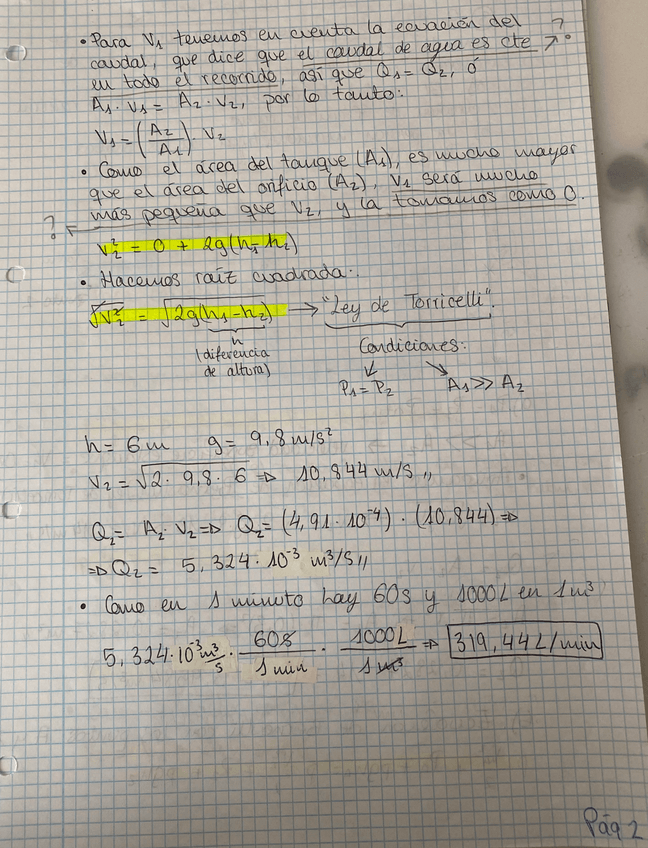 • Para V₁ tenemos en cuenta la ecuación del ?
caudal, que dice que el caudal de agua es cte ↗?
en todo el recorrido, así que Q₁ = Q₂, ó
A₁ · V₁ = A₂ · V₂, por lo tanto:
V₁ = (A₂/A₁) · V₂
• Como el área del tanque (A₁), es mucho mayor
que el área del orificio (A₂), V₁ será mucho
más pequeña que V₂, y la tomamos como 0.
? ←
V₂² = 0 + 2g(h₁ - h₂)
• Hacemos raíz cuadrada:
√V₂² = √2g(h₁ - h₂) → "Ley de Torricelli".
h
(diferencia
de altura)
Condiciones:
↙ ↘
P₁ = P₂ A₁ >> A₂
h = 6 m g = 9,8 m/s²
V₂ = √2 · 9,8 · 6 ⇒ 10,844 m/s //
Q₂ = A₂ · V₂ ⇒ Q₂ = (4,91 · 10⁻⁴) · (10,844) ⇒
⇒ Q₂ = 5,324 · 10⁻³ m³/s //
• Como en 1 minuto hay 60s y 1000L en 1m³
5,324 · 10⁻³ m³/s · 60s/1 min · 1000L/1m³ ⇒ 319,44 L/min
Pág 2